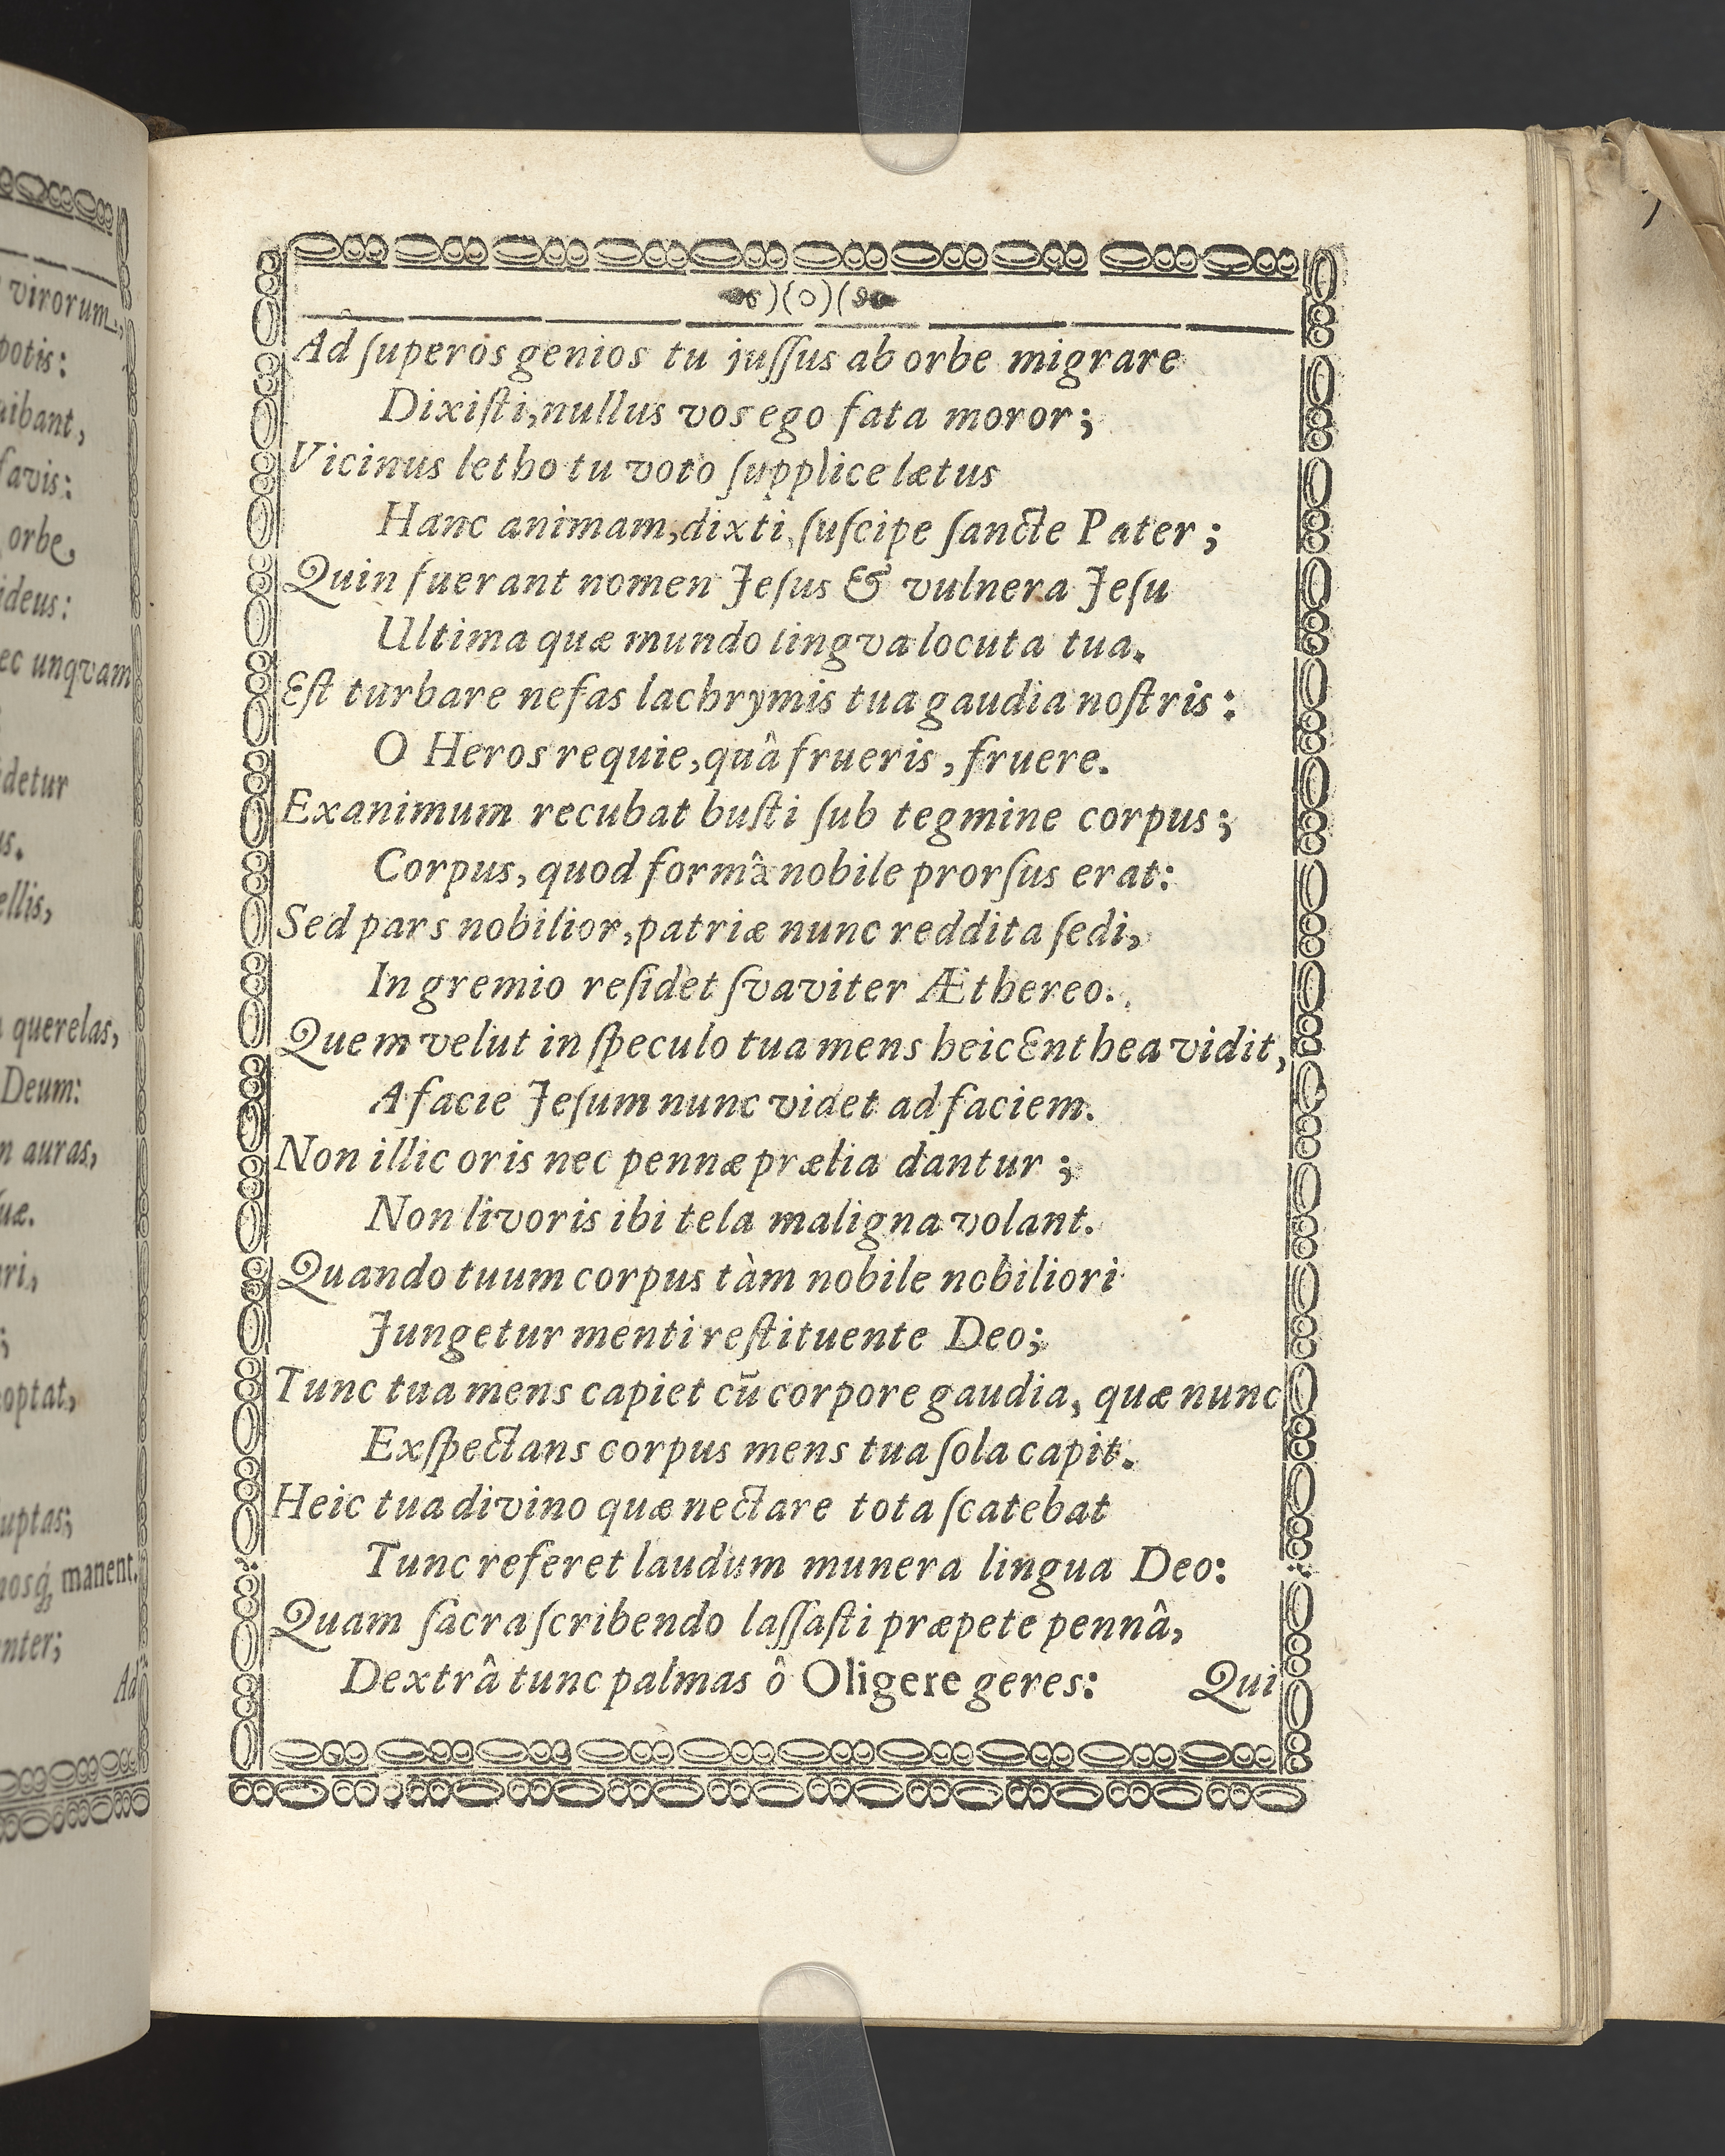 virorum,
potis:
aibant,
favis:
orbe,
ideus:
ec unqvam
detur
us.
ellis,
querelas,
Deum:
auras,
optat,
manent.
Ad
)(o)(
Ad ſuperos genios tu juſſus ab orbe migrare
Dixiſti, nullus vos ego fata moror;
Vicinus letho tu voto ſupplice lætus
Hanc animam, dixti, ſuſcipe ſancte Pater;
Quin fuerant nomen Jeſus & vulnera Jeſu
Ultima quæ mundo lingva locuta tua.
Eſt turbare nefas lachrymis tua gaudia noſtris:
O Heros requie, quâ frueris, fruere.
Exanimum recubat buſti ſub tegmine corpus;
Corpus, quod formâ nobile prorſus erat:
Sed pars nobilior, patriæ nunc reddita ſedi,
In gremio reſidet ſvaviter Æthereo.
Quem velut in ſpeculo tua mens heic Enthea vidit,
A facie Jeſum nunc videt ad faciem.
Non illic oris nec pennæ prælia dantur;
Non livoris ibi tela maligna volant.
Quando tuum corpus tàm nobile nobiliori
Jungetur menti reſtituente Deo;
Tunc tua mens capiet cū corpore gaudia, quæ nunc
Exſpectans corpus mens tua ſola capit.
Heic tua divino quæ nectare tota ſcatebat
Tunc referet laudum munera lingua Deo:
Quam ſacra ſcribendo laſſaſti præpete pennâ,
Dextrâ tunc palmas ô Oligere geres:
Qui